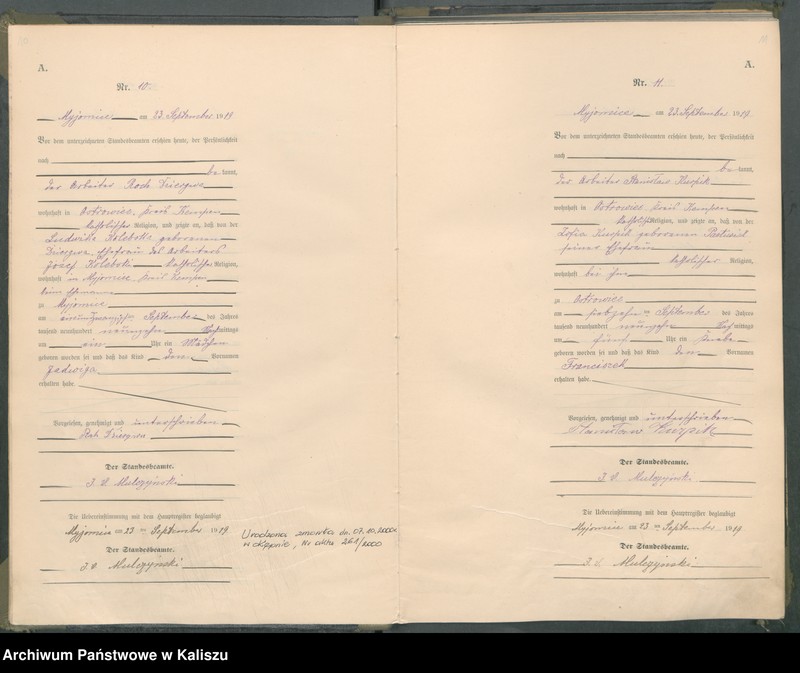 A.
Nr. 10
Myjomice am 23. September 1919
Vor dem unterzeichneten Standesbeamten erschien heute, der Persönlichkeit
nach
bekannt,
der Arbeiter Roch
wohnhaft in Ostrowiec, Kreis Kempen
katholischer Religion, und zeigte an, daß von der
Ludwika geborenen
Ehefrau des Arbeiters
Józef katholischer Religion,
wohnhaft in Myjomice Kreis Kempen
beim Ehemanne
zu Myjomice
am einundzwanzigsten September des Jahres
tausend neunhundert neunzehn Nachmittags
um ein Uhr ein Mädchen
geboren worden sei und daß das Kind den Vornamen
Jadwiga
erhalten habe
Vorgelesen, genehmigt und unterschrieben
Roch
Der Standesbeamte.
J. V. Mulczyński
Die Uebereinstimmung mit dem Hauptregister beglaubigt
Myjomice am 23 ten September 1919
Der Standesbeamte.
J. V. Mulczyński
Urodzona zmarła dn. 07.10.2000r.
w Kępnie, Nr aktu 261/2000
A.
Nr. 11
Myjomice am 23. September 1919
Vor dem unterzeichneten Standesbeamten erschien heute, der Persönlichkeit
nach
bekannt,
der Arbeiter Stanisław Kurpik
wohnhaft in Ostrowiec Kreis Kempen
katholischer Religion, und zeigte an, daß von der
Zofia Kurpik geborenen
seiner Ehefrau
katholischer Religion,
wohnhaft bei ihm
zu Ostrowiec
am siebzehn ten September des Jahres
tausend neunhundert neunzehn Nachmittags
um fünf Uhr ein Knabe
geboren worden sei und daß das Kind den Vornamen
Franciszek
erhalten habe
Vorgelesen, genehmigt und unterschrieben
Stanisław Kurpik
Der Standesbeamte.
J. V. Mulczyński
Die Uebereinstimmung mit dem Hauptregister beglaubigt
Myjomice am 23 ten September 1919
Der Standesbeamte.
J. V. Mulczyński
Archiwum Państwowe w Kaliszu